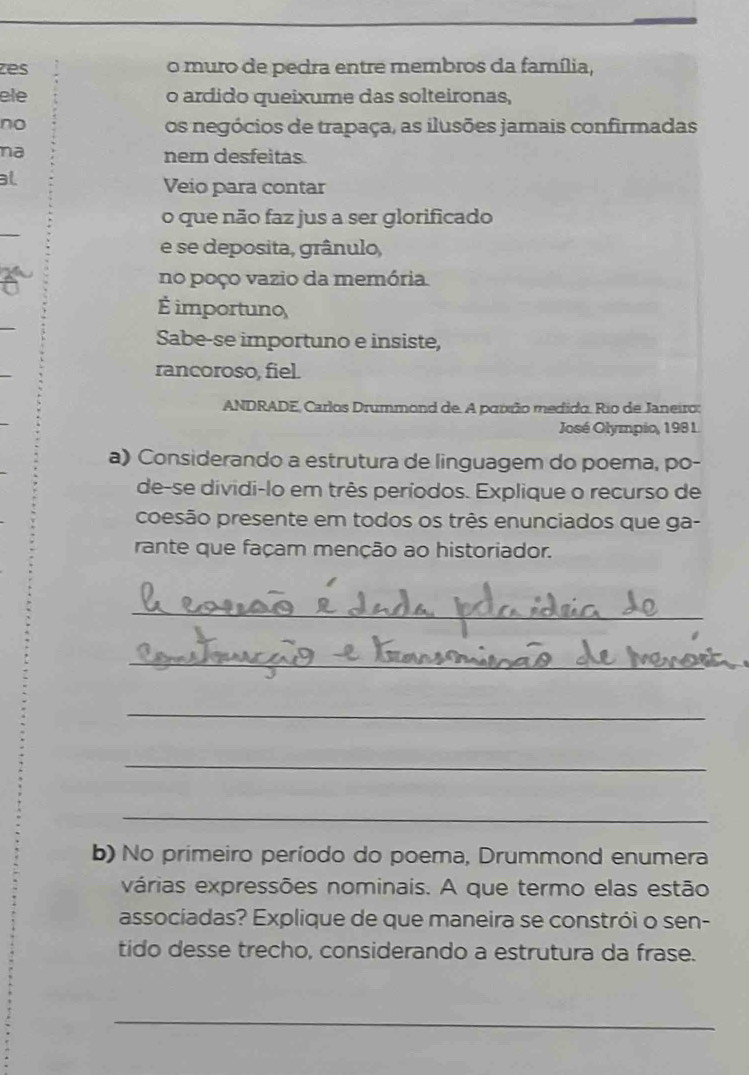 zes
o muro de pedra entre membros da família,
ele
o ardido queixume das solteironas,
no
os negócios de trapaça, as ilusões jamais confirmadas
na
nem desfeitas.
al
Veio para contar
o que não faz jus a ser glorificado
e se deposita, grânulo,
no poço vazio da memória.
É importuno,
Sabe-se importuno e insiste,
rancoroso, fiel.
ANDRADE, Carlos Drummond de. A paixão medida. Rio de Janeiro:
José Olympio, 1981.
a) Considerando a estrutura de linguagem do poema, po-
de-se dividi-lo em três períodos. Explique o recurso de
coesão presente em todos os três enunciados que ga-
rante que façam menção ao historiador.
A coesão é dada pela ideia de
construção e transmissão de memória.
b) No primeiro período do poema, Drummond enumera
várias expressões nominais. A que termo elas estão
associadas? Explique de que maneira se constrói o sen-
tido desse trecho, considerando a estrutura da frase.